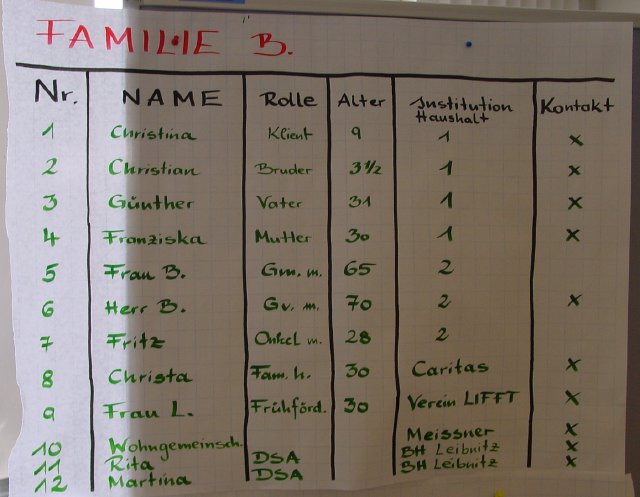 FAMILIE B.
Nr. NAME Rolle Alter Institution Haushalt Kontakt
1 Christina Klient 9 1 x
2 Christian Bruder 3 1/2 1 x
3 Günther Vater 31 1 x
4 Franziska Mutter 30 1 x
5 Frau B. Gm. m. 65 2
6 Herr B. Gv. m. 70 2 x
7 Fritz Onkel m. 28 2
8 Christa Fam. h. 30 Caritas x
9 Frau L. Frühförd. 30 Verein LIFFT x
10 Wohngemeinsch. Meissner x
11 Rita DSA BH Leibnitz x
12 Martina DSA BH Leibnitz x